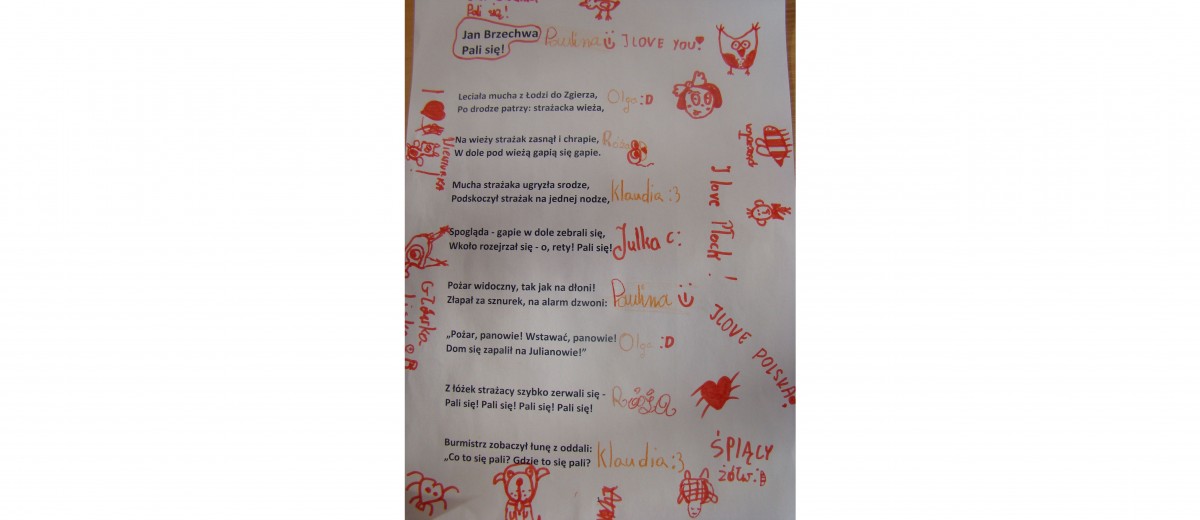 Pali się!
Jan Brzechwa
Pali się!
Paulina I LOVE YOU!
Leciała mucha z Łodzi do Zgierza,
Po drodze patrzy: strażacka wieża,
Olga :D
Na wieży strażak zasnął i chrapie,
W dole pod wieżą gapią się gapie.
Mucha strażaka ugryzła srodze,
Podskoczył strażak na jednej nodze,
Klaudia :3
Spogląda - gapie w dole zebrali się,
Wkoło rozejrzał się - o, rety! Pali się!
Julka c:
Pożar widoczny, tak jak na dłoni!
Złapał za sznurek, na alarm dzwoni:
Paulina
„Pożar, panowie! Wstawać, panowie!
Dom się zapalił na Julianowie!”
Olga :D
Z łóżek strażacy szybko zerwali się -
Pali się! Pali się! Pali się! Pali się!
Róża
Burmistrz zobaczył łunę z oddali:
„Co to się pali? Gdzie to się pali?
Klaudia :3
I love Płock!
I LOVE POLSKA!
ŚPIĄCY
żółw :D